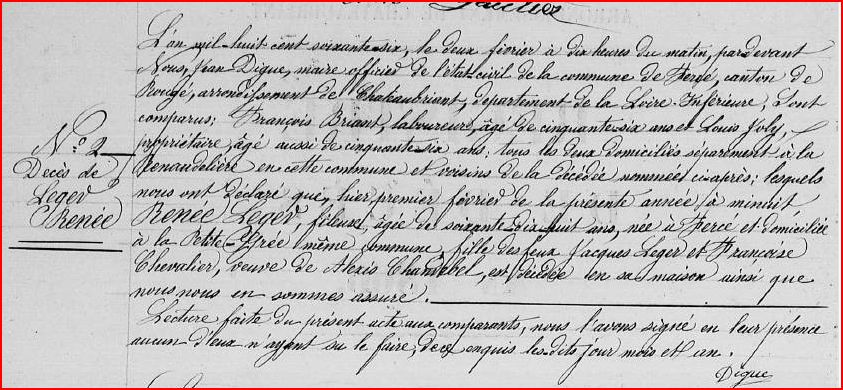 L'an mil huit cent soixante-six, le deux février à dix heures du matin, pardevant
Nous, Jean Digue, maire officier de l'état civil de la commune de Fercé, canton de
Rougé, arrondissement de Chateaubriant, département de la Loire Inférieure, Sont
comparus: François Briant, laboureur, âgé de cinquante-six ans et Louis Joly,
propriétaire, âgé aussi de cinquante-six ans; tous les deux domiciliés séparément à la
Renaudelière en cette commune et voisins de la décédée nommée ci-après; lesquels
nous ont déclaré que, hier, premier février de la présente année, à minuit
Renée Leger, fileuse, âgée de soixante-dix-huit ans, née à Fercé et domiciliée
à la Petite-Prée même commune, fille des feux Jacques Leger et Françoise
Chevalier, veuve de Alexis Chanrebel, est décédée en sa maison ainsi que
nous nous en sommes assuré.
Lecture faite du présent acte aux comparants, nous l'avons signé en leur présence
aucun d'eux n'ayant su le faire, de ce enquis les dits jour mois et an.
Digue
No 2
Décès de
Leger
Renée